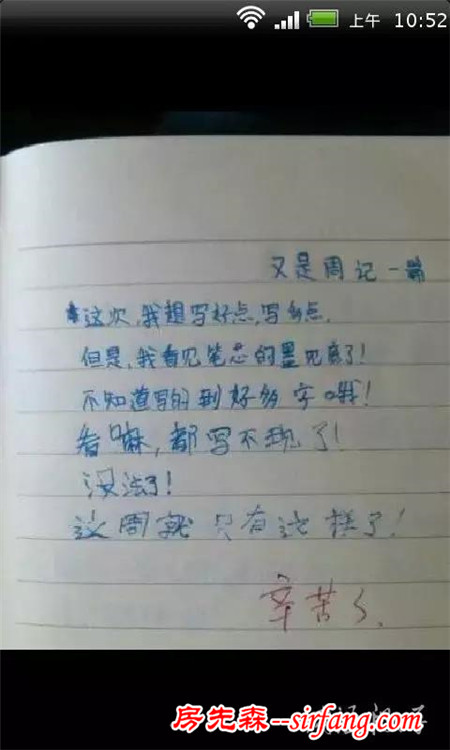 上午 10:52
又是周记一篇
这次,我想写好点,写多点.
但是,我看见笔芯的墨见底了!
不知道写的到好多字哦!
看嘛,都写不现了!
没法了!
这周就只有这样了!
辛苦了.
房先森--sirfang.com